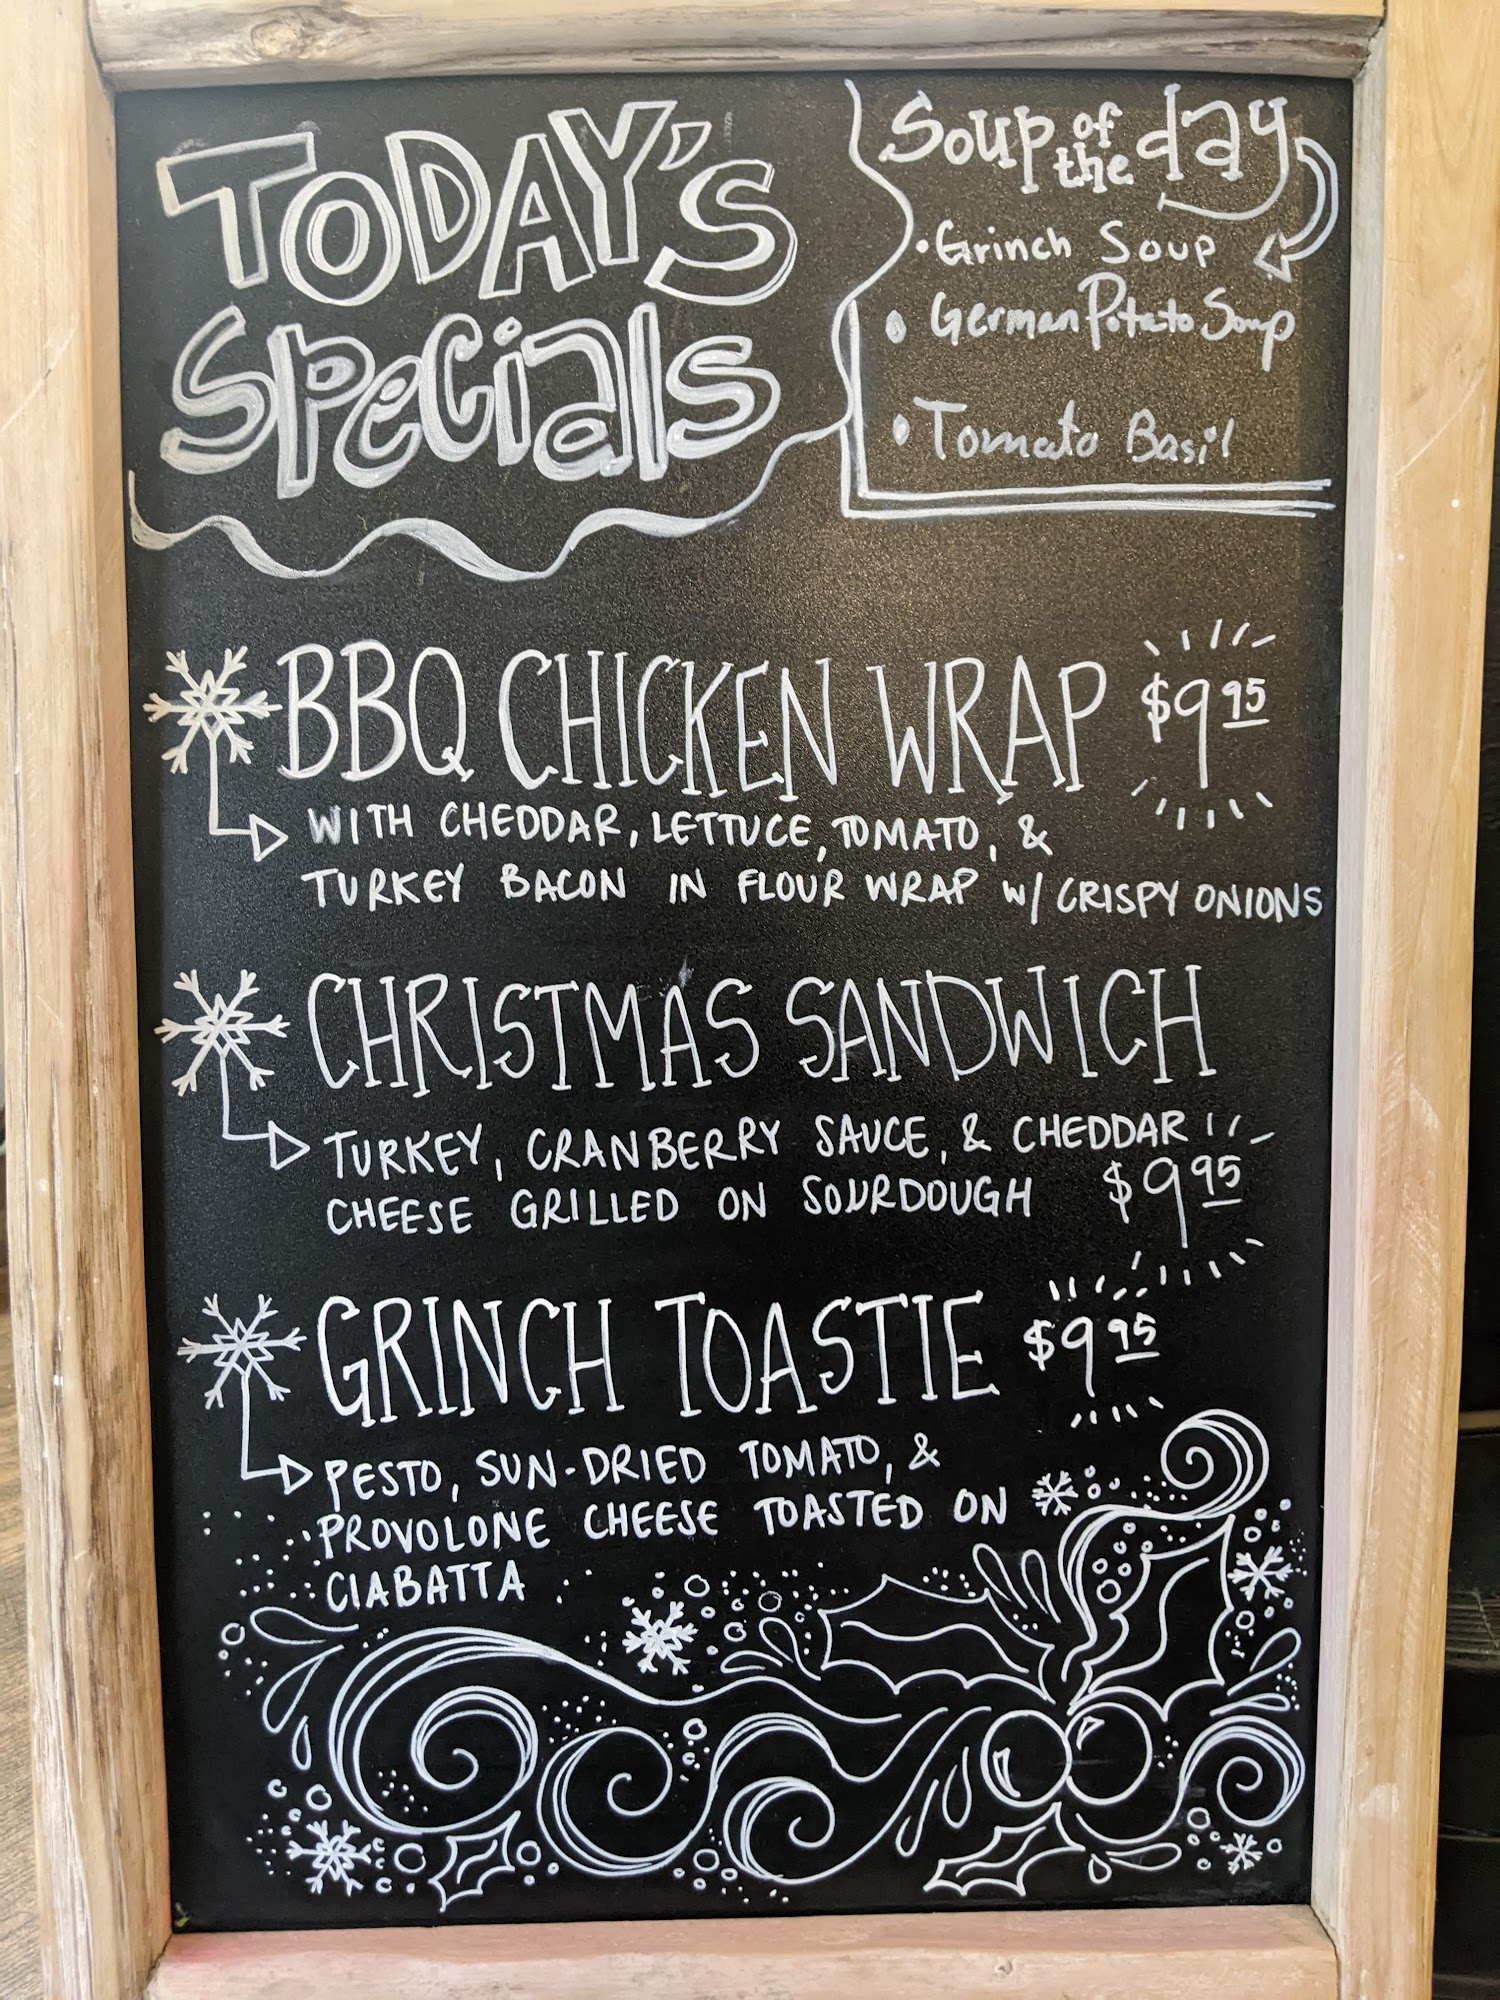 TODAY'S
SPECIALS
Soup of the day
• Grinch Soup
• German Potato Soup
• Tomato Basil
BBQ CHICKEN WRAP $9 95
WITH CHEDDAR, LETTUCE, TOMATO, &
TURKEY BACON IN FLOUR WRAP W/ CRISPY ONIONS
CHRISTMAS SANDWICH
TURKEY, CRANBERRY SAUCE, & CHEDDAR
CHEESE GRILLED ON SOURDOUGH $9 95
GRINCH TOASTIE $9 95
PESTO, SUN-DRIED TOMATO, &
PROVOLONE CHEESE TOASTED ON
CIABATTA